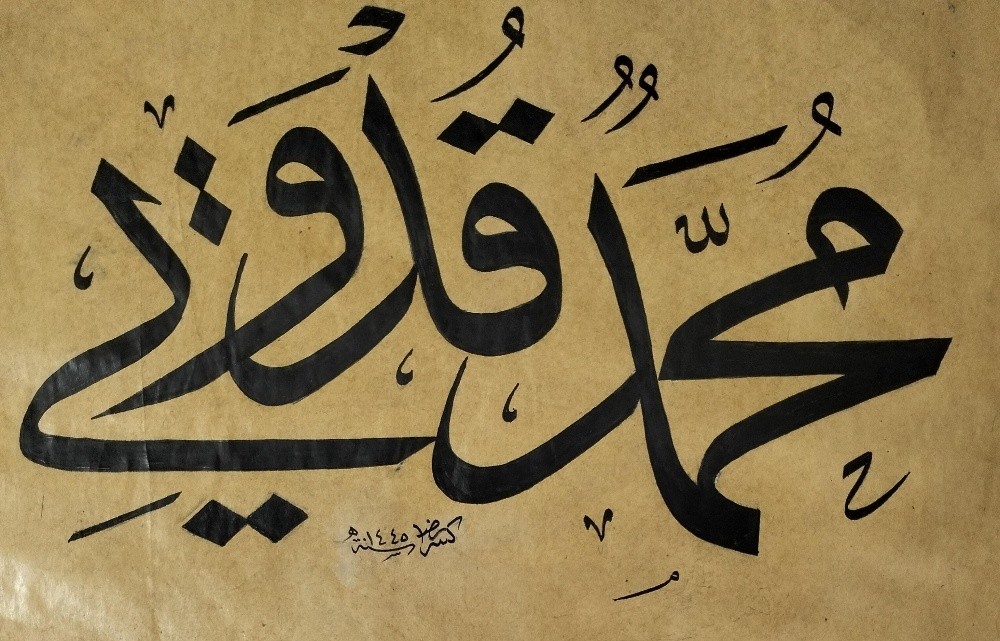 مُحَمَّدٌ قُدْوَتِي
كتبه رضا سنة ١٤٤٥هـ